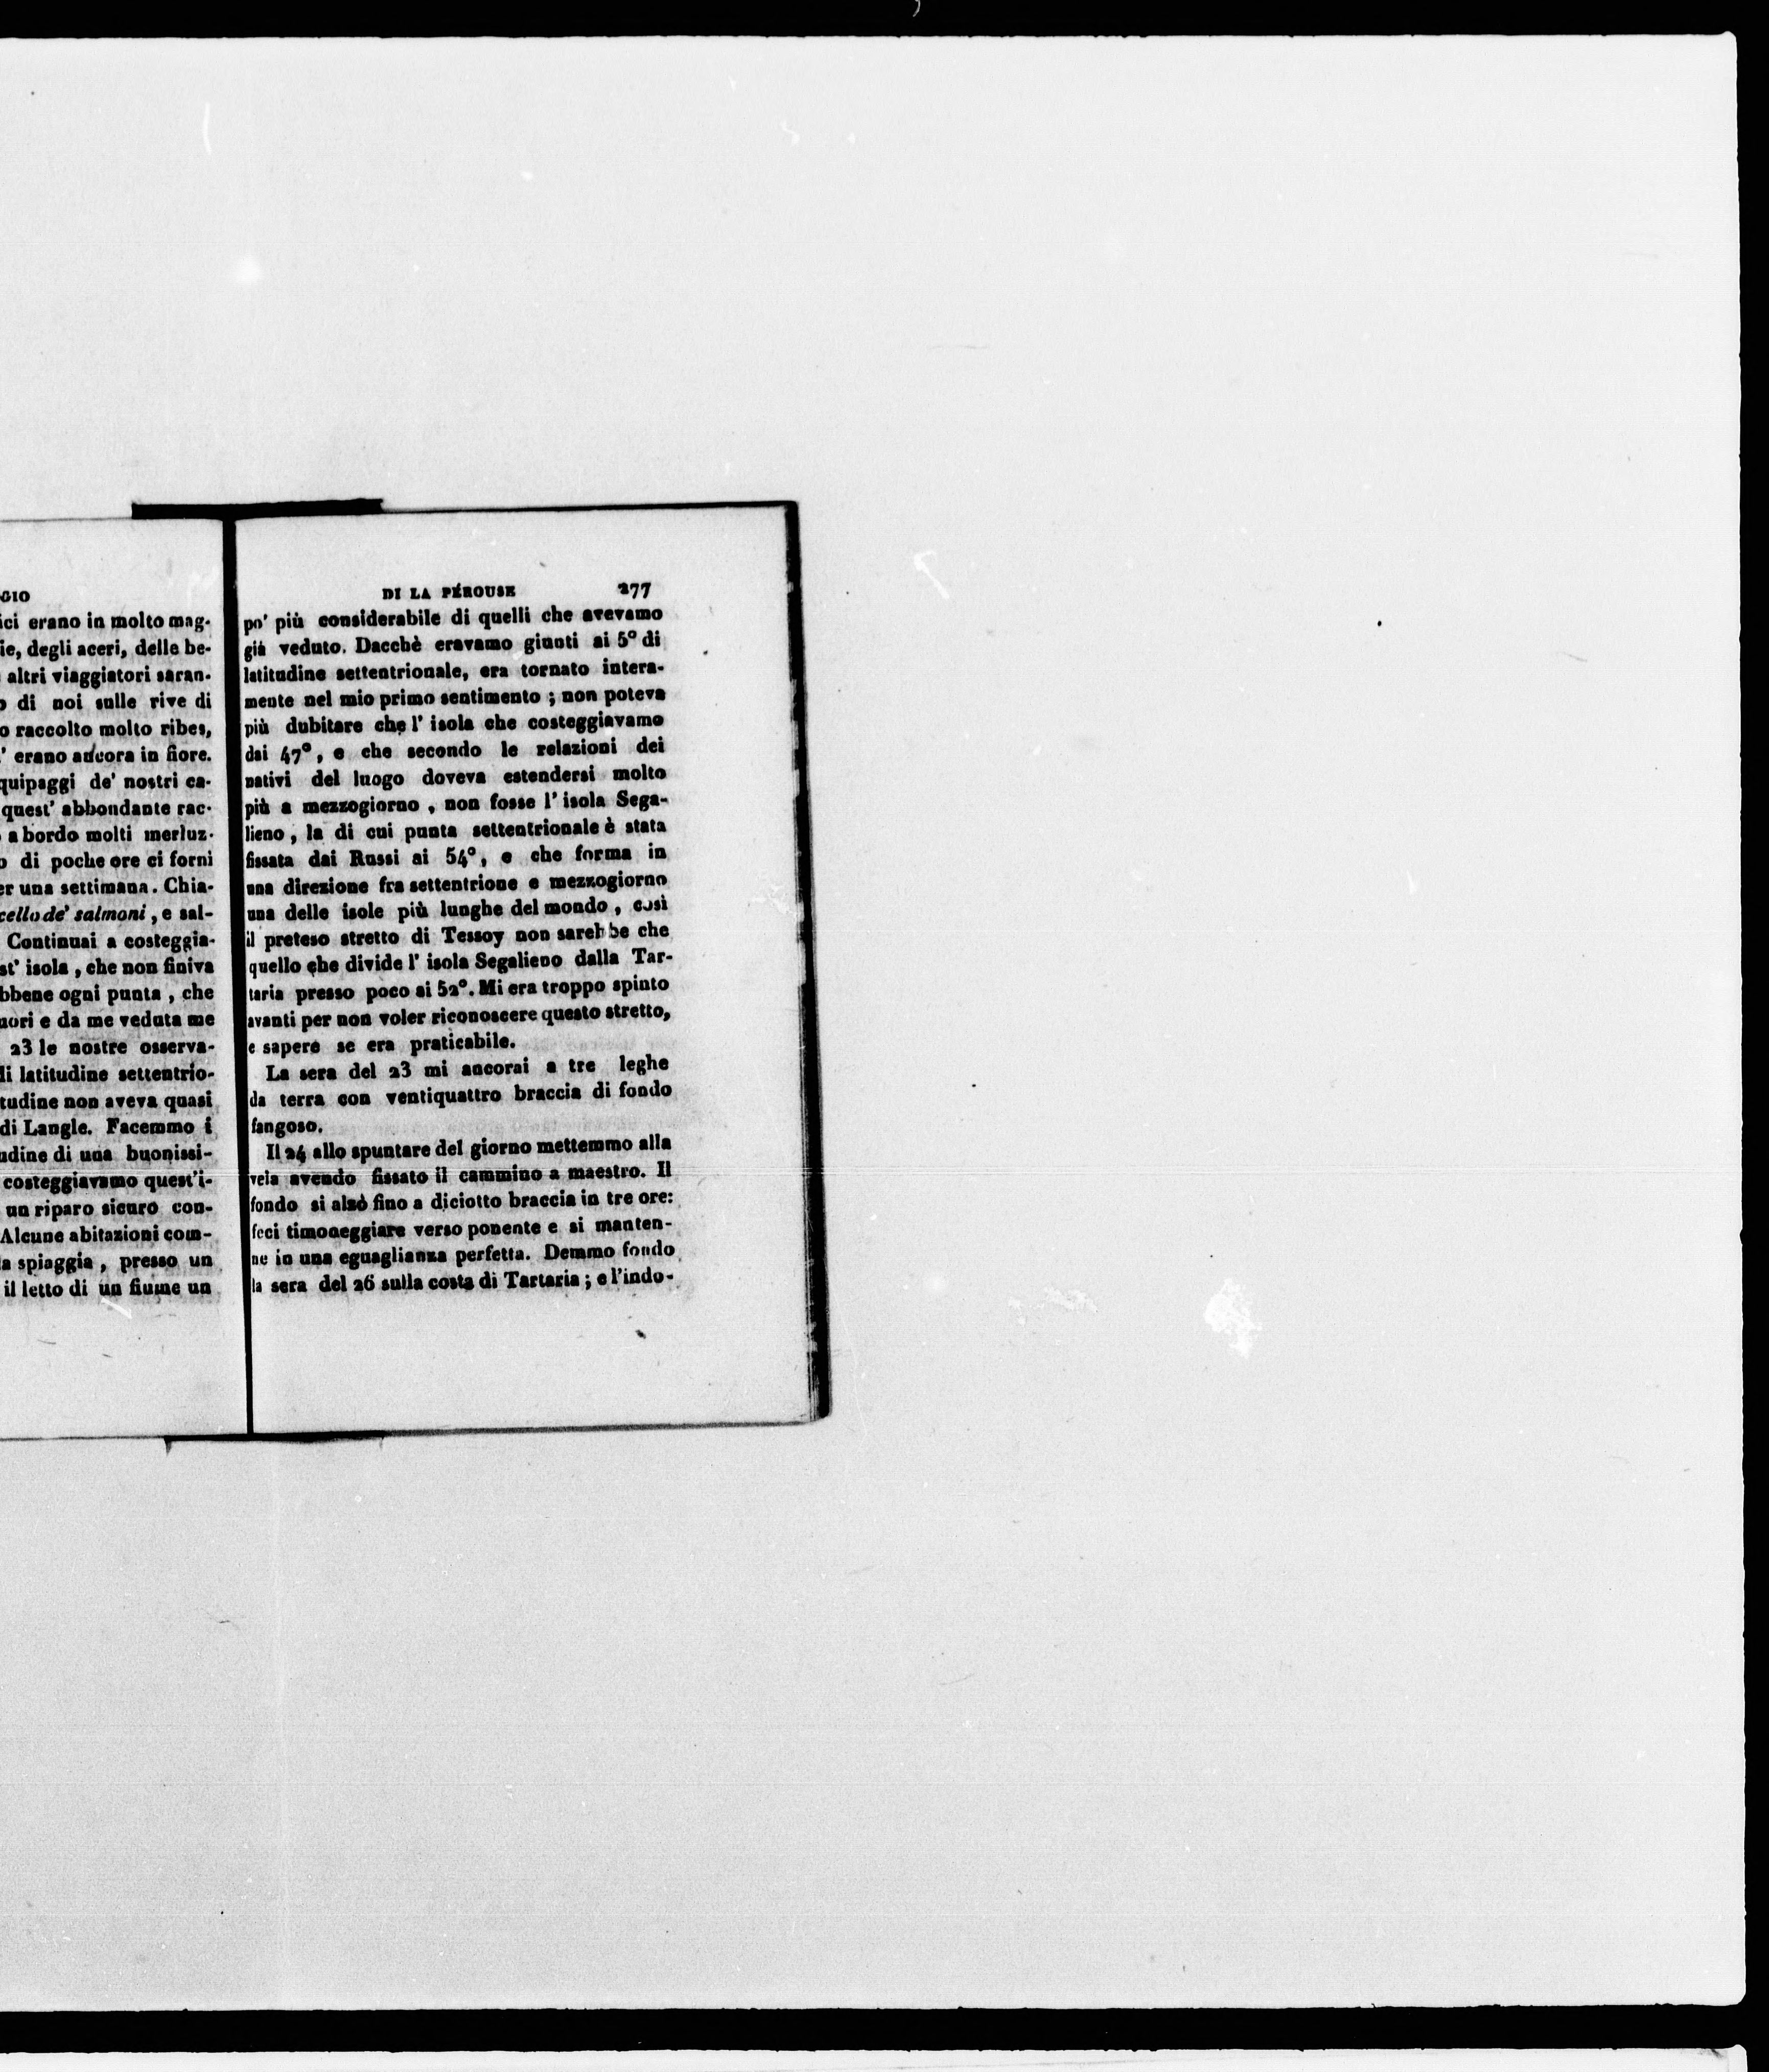 GIO
ici erano in molto mag-
ie, degli aceri, delle be-
altri viaggiatori saran-
di noi sulle rive di
o raccolto molto ribes,
' erano ancora in fiore.
quipaggi de' nostri ca-
quest' abbondante rac-
a bordo molti merluz-
o di poche ore ci fornì
er una settimana. Chia-
cello de' salmoni, e sal-
Continuai a costeggia-
st' isola, che non finiva
bbene ogni punta, che
nori e da me veduta me
23 le nostre osserva-
di latitudine settentrio-
tudine non aveva quasi
di Langle. Facemmo i
udine di una buonissi-
costeggiavamo quest'i-
un riparo sicuro con-
Alcune abitazioni com-
a spiaggia, presso un
il letto di un fiume un
DI LA PÉROUSE 277
po' più considerabile di quelli che avevamo
già veduto. Dacchè eravamo giunti ai 5° di
latitudine settentrionale, era tornato intera-
mente nel mio primo sentimento; non poteva
più dubitare che l' isola che costeggiavamo
dai 47°, e che secondo le relazioni dei
nativi del luogo doveva estendersi molto
più a mezzogiorno, non fosse l' isola Sega-
lieno, la di cui punta settentrionale è stata
fissata dai Russi ai 54°, e che forma in
una direzione fra settentrione e mezzogiorno
una delle isole più lunghe del mondo, così
il preteso stretto di Tessoy non sarebbe che
quello che divide l' isola Segalieno dalla Tar-
taria presso poco ai 52°. Mi era troppo spinto
avanti per non voler riconoscere questo stretto,
e sapere se era praticabile.
La sera del 23 mi ancorai a tre leghe
da terra con ventiquattro braccia di fondo
fangoso.
Il 24 allo spuntare del giorno mettemmo alla
vela avendo fissato il cammino a maestro. Il
fondo si alzò fino a diciotto braccia in tre ore:
feci timoneggiare verso ponente e si manten-
ne in una eguaglianza perfetta. Demmo fondo
la sera del 26 sulla costa di Tartaria; e l'indo-